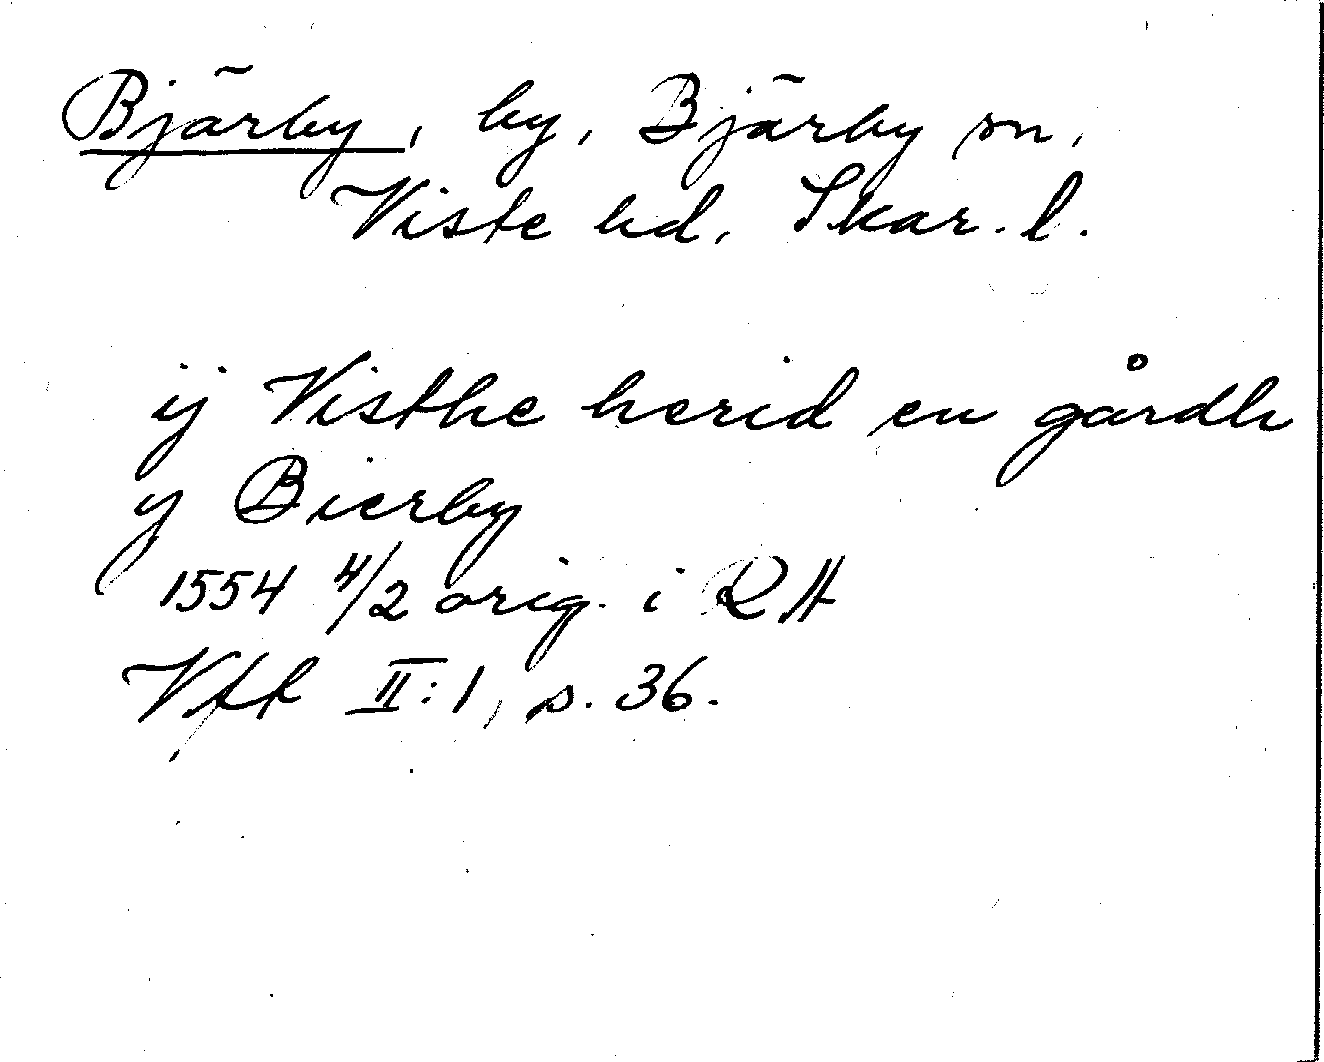 Bjärby, by, Bjärby sn,
Viste hd, Skar. l.
ij Visthe herid en gårdh
y Bierby
1554 4/2 orig. i RA
Vff II:1, s. 36.